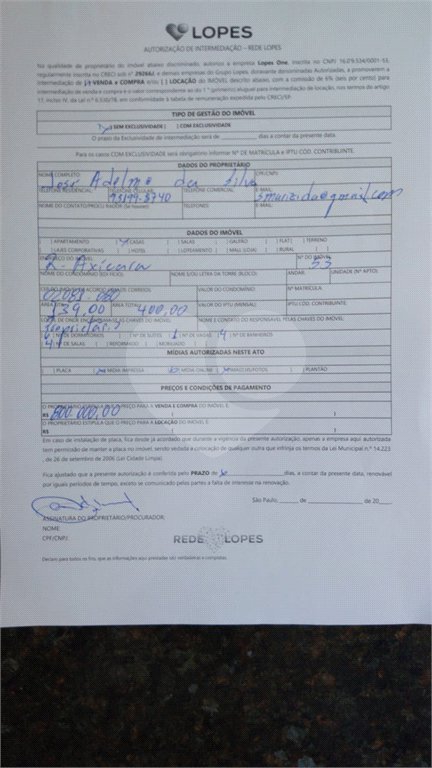 LOPES
AUTORIZAÇÃO DE INTERMEDIAÇÃO - REDE LOPES
Na qualidade de proprietário do imóvel abaixo discriminado, autorizo a empresa Lopes One, inscrita no CNPJ
regularmente inscrita no CRECI sob nº 29266J, e demais empresas do Grupo Lopes, doravante denominadas Autorizadas, a promoverem a
intermediação de VENDA e COMPRA e/ou [ ] LOCAÇÃO do IMÓVEL descrito abaixo, com a comissão de 6% (seis por cento) para
intermediação de venda e compra e o valor correspondente ao 1º (primeiro) aluguel para intermediação de locação, nos termos do artigo
17, inciso IV, da Lei n.º 6.530/78, em conformidade a tabela de remuneração expedida pelo CRECI/SP.
TIPO DE GESTÃO DO IMÓVEL
SEM EXCLUSIVIDADE [ ] COM EXCLUSIVIDADE
O prazo da Exclusividade de intermediação será de ______ dias a contar da presente data.
Para os casos COM EXCLUSIVIDADE será obrigatório informar Nº DE MATRÍCULA e IPTU CÓD. CONTRIBUINTE.
DADOS DO PROPRIETÁRIO
NOME COMPLETO: CPF/CNPJ:
José Adelmo da Silva
TELEFONE RESIDENCIAL: TELEFONE CELULAR: TELEFONE COMERCIAL: E-MAIL:
smarizida@gmail.com
NOME DO CONTATO/PROCURADOR (Se houver): TELEFONES: E-MAIL:
DADOS DO IMÓVEL
[ ] APARTAMENTO CASAS [ ] SALAS [ ] GALPÃO [ ] FLAT [ ] TERRENO
[ ] LAJES CORPORATIVAS [ ] HOTEL [ ] LOTEAMENTO [ ] MALL (LOJA) [ ] RURAL [ ]
ENDEREÇO DO IMÓVEL: Nº DO IMÓVEL:
R. Axicara 53
NOME DO CONDOMÍNIO (EDIFÍCIO): NOME E/OU LETRA DA TORRE (BLOCO): ANDAR: UNIDADE (Nº APTO):
VALOR DO CONDOMÍNIO: N.º MATRÍCULA:
02081-060
ÁREA ÚTIL: ÁREA TOTAL: VALOR DO IPTU (MENSAL): IPTU CÓD. CONTRIBUINTE:
139,00 400,00
LOCAL DE ONDE ENCONTRAM-SE AS CHAVES DO IMÓVEL: NOME E CONTATO DO RESPONSÁVEL PELAS CHAVES DO IMÓVEL:
Nº DE DORMITÓRIOS Nº DE SUÍTES 1 Nº DE VAGAS 4 Nº DE BANHEIROS
Nº DE SALAS [ ] REFORMADO [ ] MOBILIADO
MÍDIAS AUTORIZADAS NESTE ATO
[ ] PLACA MÍDIA IMPRESSA MÍDIA ONLINE [ ] PLANTÃO
PREÇOS E CONDIÇÕES DE PAGAMENTO
O PROPRIETÁRIO ESTIPULA QUE O PREÇO PARA A VENDA E COMPRA DO IMÓVEL É:
R$ 800.000,00
O PROPRIETÁRIO ESTIPULA QUE O PREÇO PARA A LOCAÇÃO DO IMÓVEL É:
R$
Em caso de instalação de placa, fica desde já acordado que durante a vigência da presente autorização, apenas a empresa aqui autorizada
tem permissão de manter a placa no imóvel, sendo vedada a colocação de qualquer outra que infrinja os termos da Lei Municipal n.º 14.223
, de 26 de setembro de 2006 (Lei Cidade Limpa).
Fica ajustado que a presente autorização é conferida pelo PRAZO de ______ dias, a contar da presente data, renovável
por iguais períodos de tempo, exceto se comunicado pelas partes a falta de interesse na renovação.
São Paulo, ______ de ______ de 20___
ASSINATURA DO PROPRIETÁRIO/PROCURADOR:
NOME:
CPF/CNPJ:
REDE LOPES
Declaro para todos os fins, que as informações aqui prestadas são verdadeiras e completas.